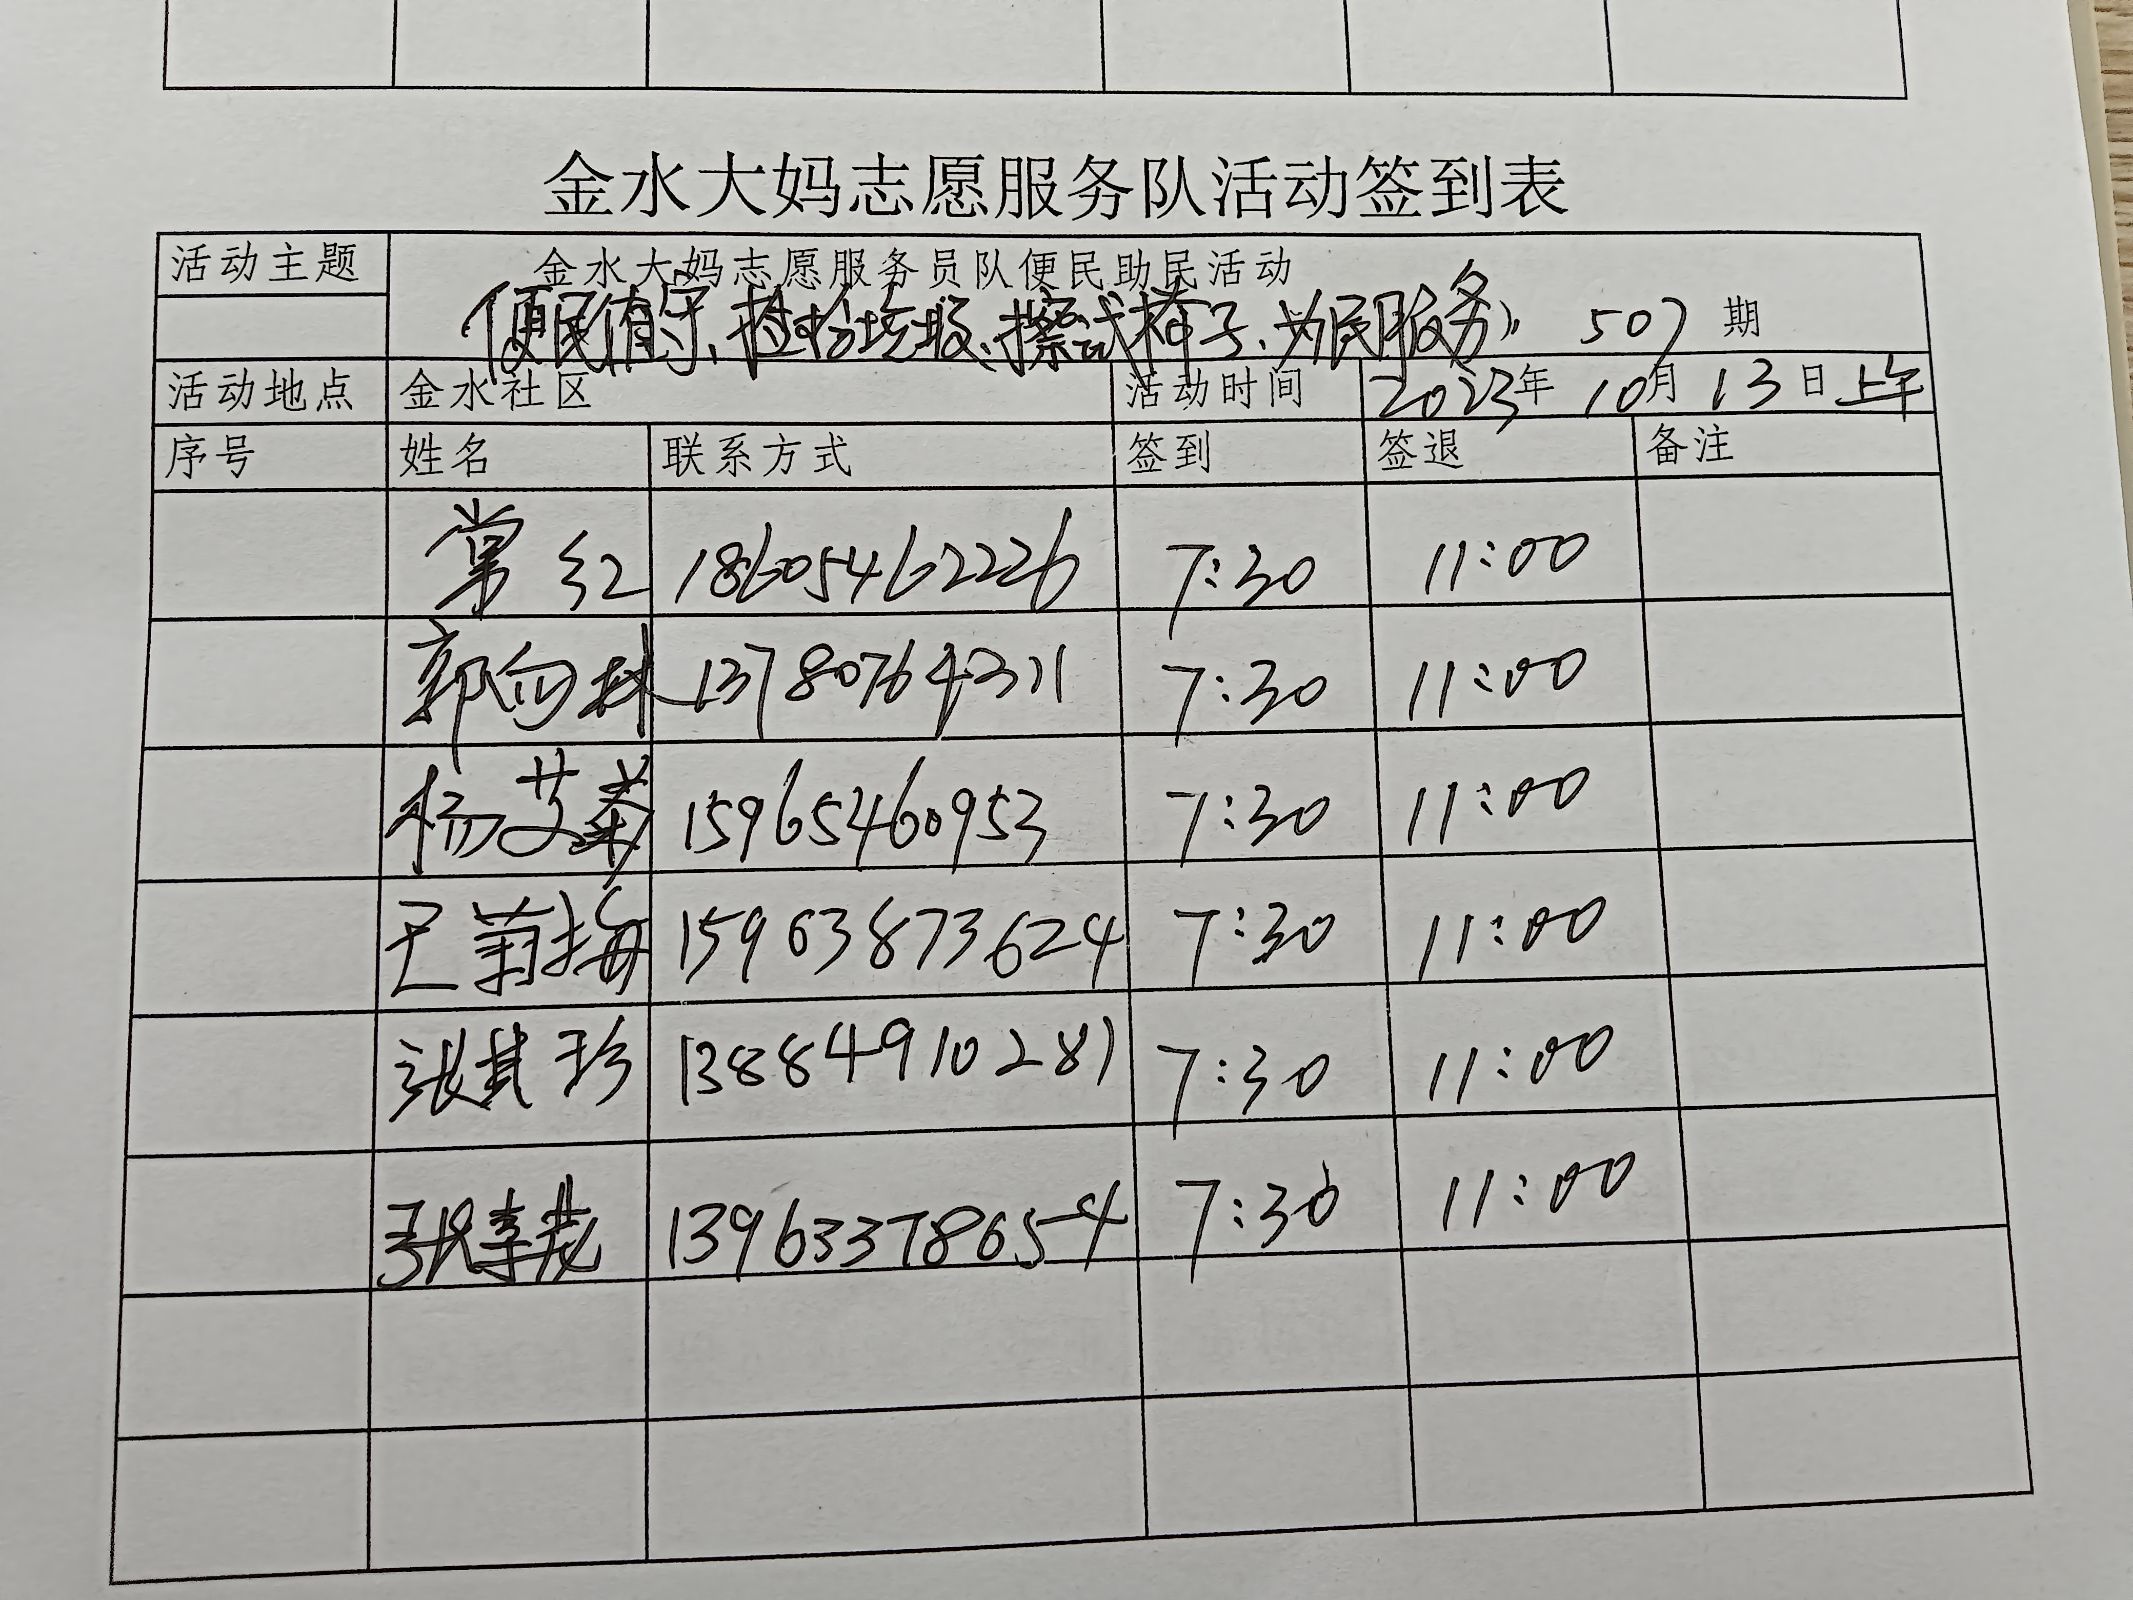 金水大妈志愿服务队活动签到表
活动主题 金水大妈志愿服务员队便民助民活动
便民值守、捡拾垃圾、擦试椅子、为民服务 507 期
活动地点 金水社区 活动时间 2023年 10月 13日上午
序号 姓名 联系方式 签到 签退 备注
常红 18605462226 7:30 11:00
郭向林 13780764311 7:30 11:00
杨艾菊 15965460953 7:30 11:00
王菊梅 15963873624 7:30 11:00
张其珍 13884910281 7:30 11:00
张李花 13963378654 7:30 11:00